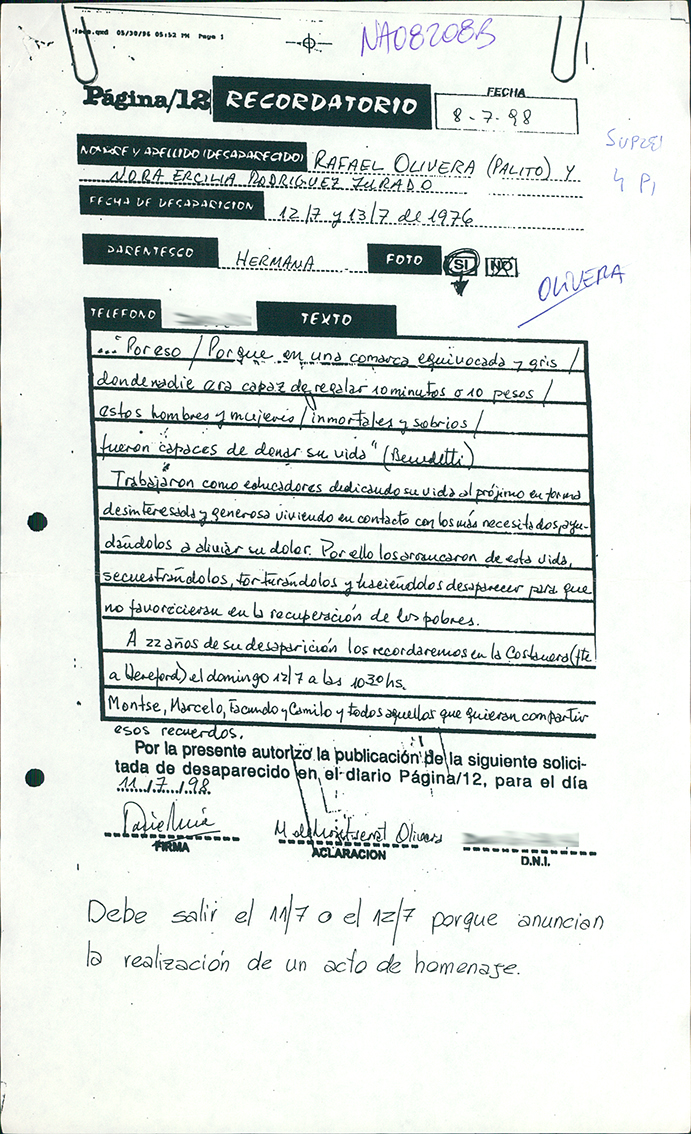 loco.qxd 05/30/96 05:52 PM Page 1
NA08208B
Página/12 RECORDATORIO
FECHA
8-7-98
NOMBRE Y APELLIDO (DESAPARECIDO) RAFAEL OLIVERA (PALITO) Y
NORA ERCILIA RODRIGUEZ JURADO
FECHA DE DESAPARICION 12/7 y 13/7 de 1976
PARENTESCO HERMANA FOTO SI NO
OLIVERA
TELEFONO TEXTO
... "Por eso / Porque en una comarca equivocada y gris /
donde nadie era capaz de regalar 10 minutos o 10 pesos /
estos hombres y mujeres / inmortales y sobrios /
fueron capaces de donar su vida" (Benedetti)
Trabajaron como educadores dedicando su vida al prójimo en forma
desinteresada y generosa viviendo en contacto con los más necesitados, ayu-
dándolos a aliviar su dolor. Por ello los arrancaron de esta vida,
secuestrándolos, torturándolos y haciéndolos desaparecer para que
no favorecieran en la recuperación de los pobres.
A 22 años de su desaparición los recordaremos en la Costanera (fte
a Hereford) el domingo 12/7 a las 10:30 hs.
Montse, Marcelo, Facundo y Camilo y todos aquellos que quieran compartir
esos recuerdos.
Por la presente autorizo la publicación de la siguiente solici-
tada de desaparecido en el diario Página/12, para el día
11/7/98.
M. de Montserrat Olivera
FIRMA ACLARACION D.N.I.
Debe salir el 11/7 o el 12/7 porque anuncian
la realización de un acto de homenage.